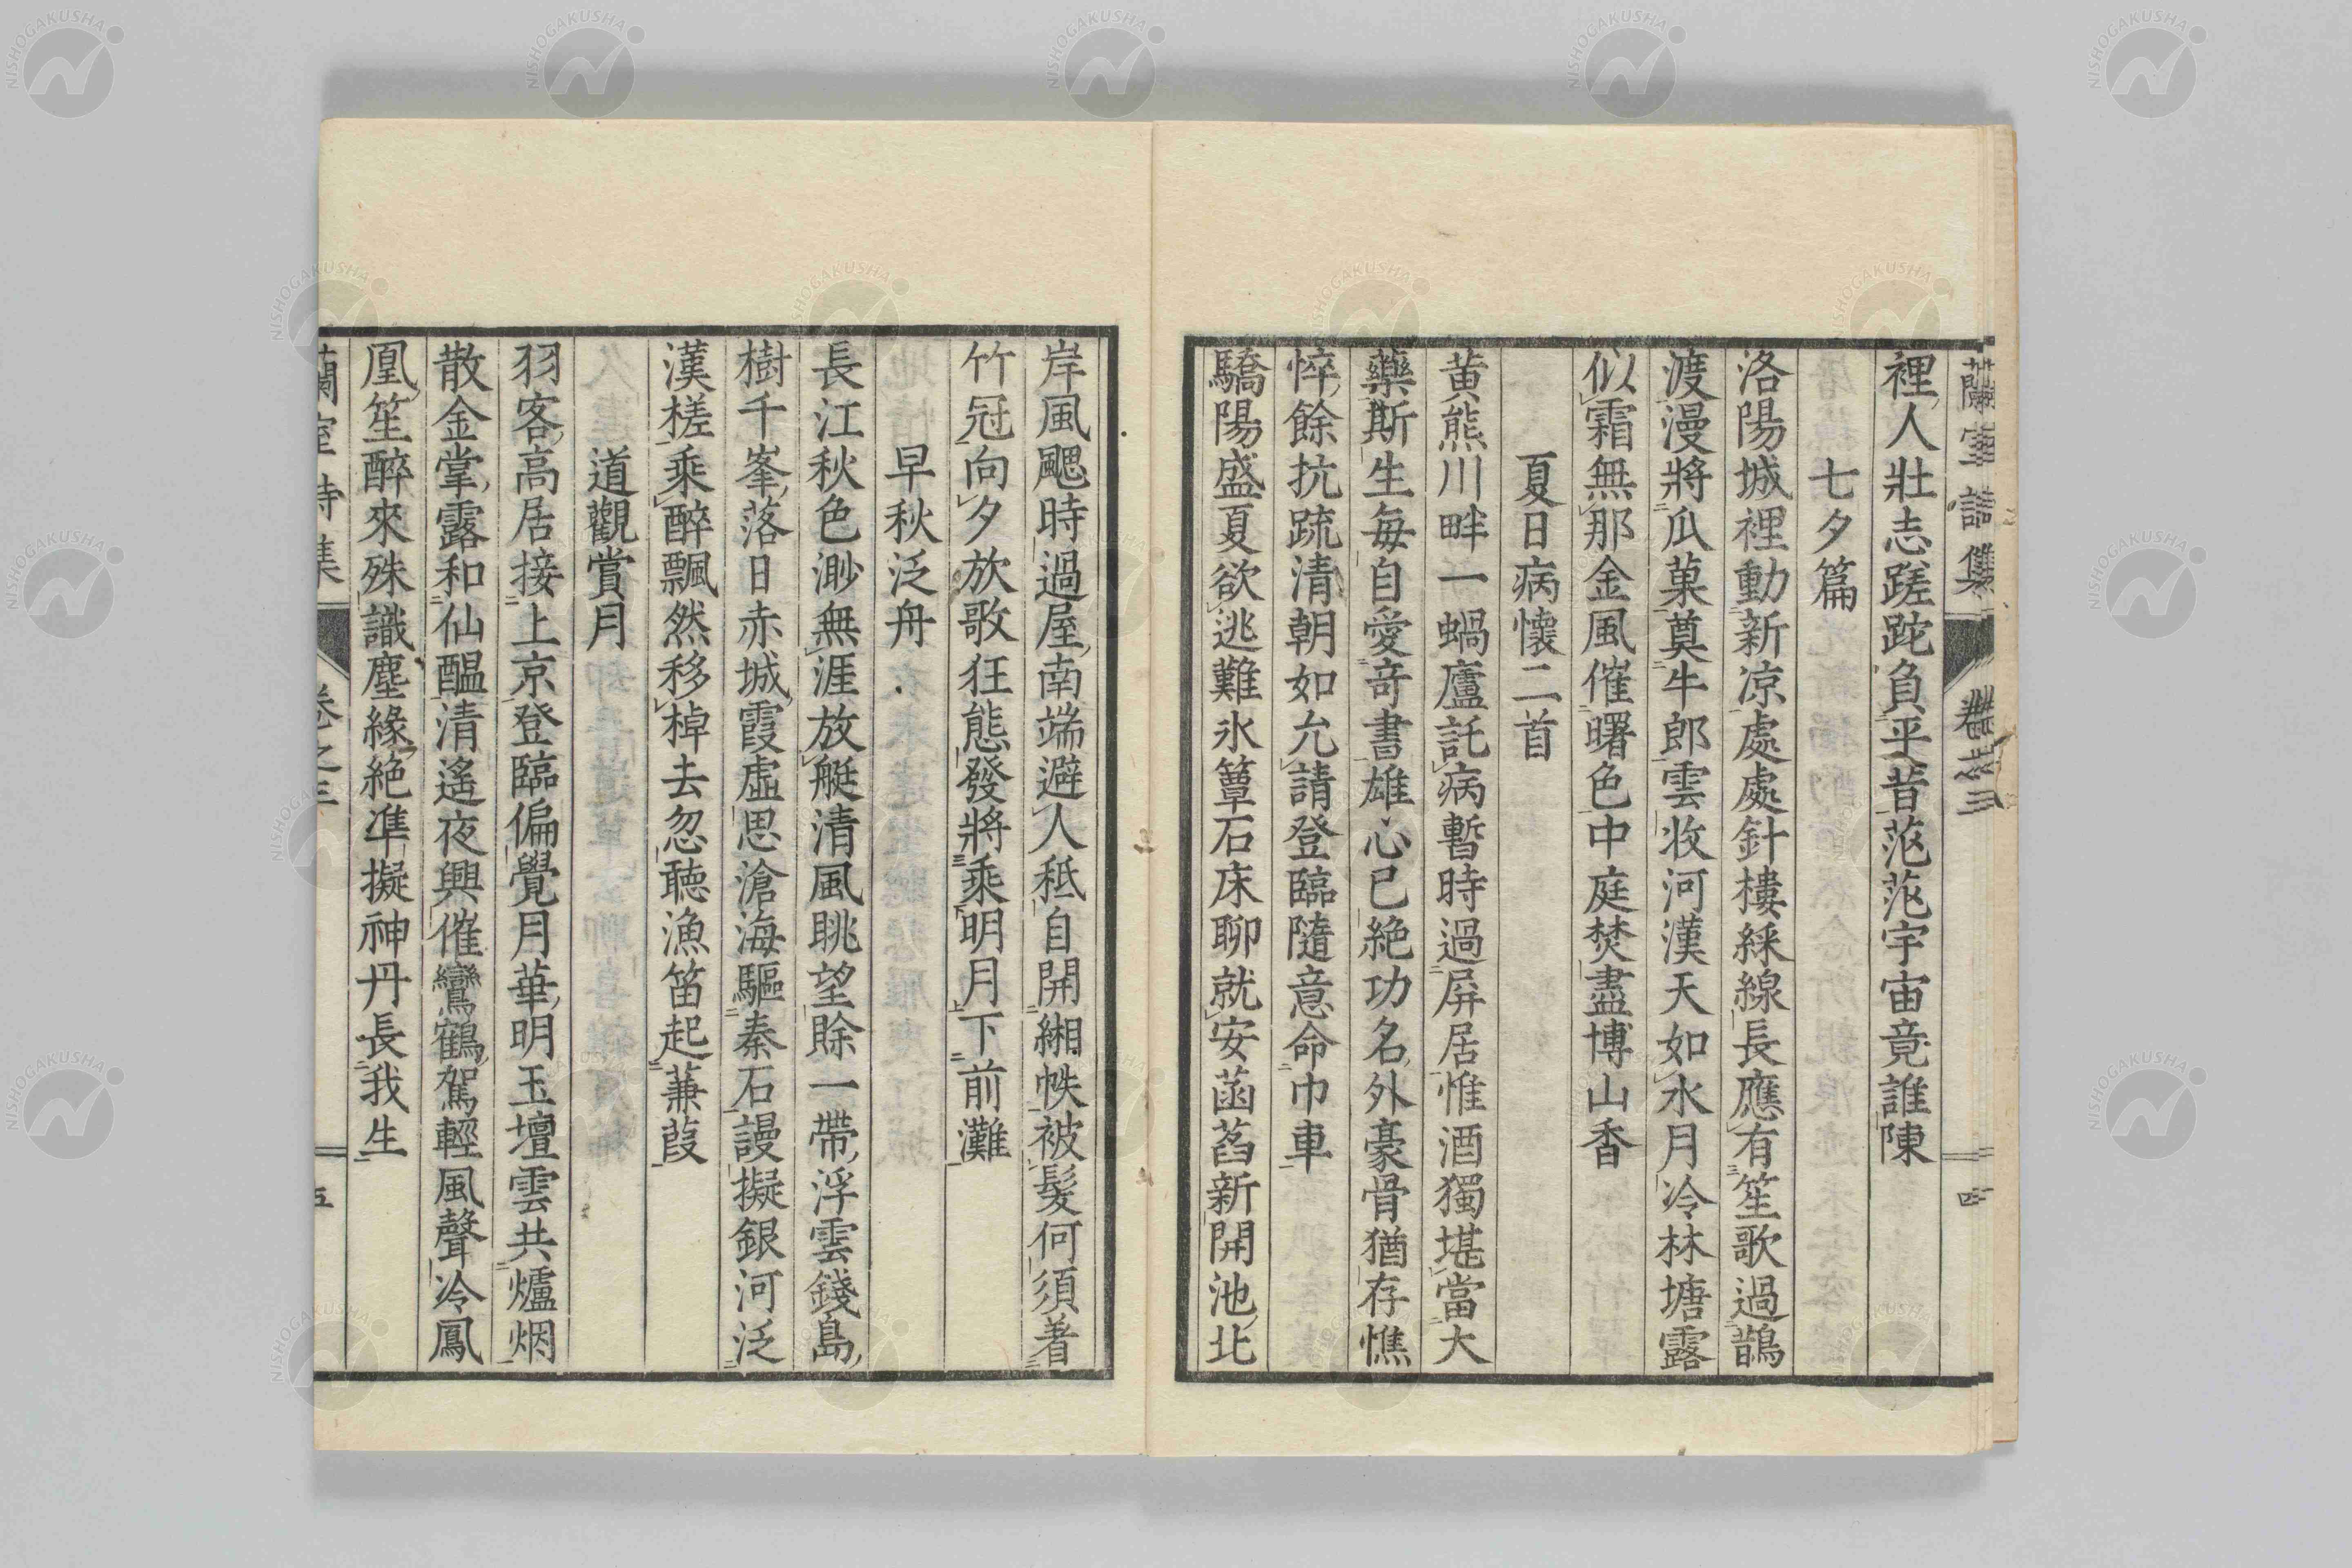 蘭室詩集 卷之三 四
裡人壯志蹉跎負平昔茫茫宇宙竟誰陳
七夕篇
洛陽城裡動新凉處處針樓綵線長應有笙歌過鵲
渡漫將瓜菓奠牛郎雲收河漢天如水月冷林塘露
似霜無那金風催曙色中庭焚盡博山香
夏日病懷二首
黄熊川畔一蝸廬託病暫時過屏居惟酒獨堪當大
藥斯生每自愛奇書雄心已絶功名外豪骨猶存憔
悴餘抗疏清朝如允請登臨隨意命巾車
驕陽盛夏欲逃難氷簟石床聊就安菡萏新開池北
岸風颸時過屋南端避人秪自開緗帙被髮何須著
竹冠向夕放歌狂態發將乘明月下前灘
早秋泛舟
長江秋色渺無涯放艇清風眺望賒一帶浮雲錢島
樹千峯落日赤城霞虛思滄海驅秦石謾擬銀河泛
漢槎乘醉飄然移棹去忽聽漁笛起蒹葭
道觀賞月
羽客高居接上京登臨偏覺月華明玉壇雲共爐烟
散金掌露和仙醞清遙夜興催鸞鶴駕輕風聲冷鳳
凰笙醉來殊識塵緣絶準擬神丹長我生
蘭室詩集 卷之三 五
NISHOGAKUSHA